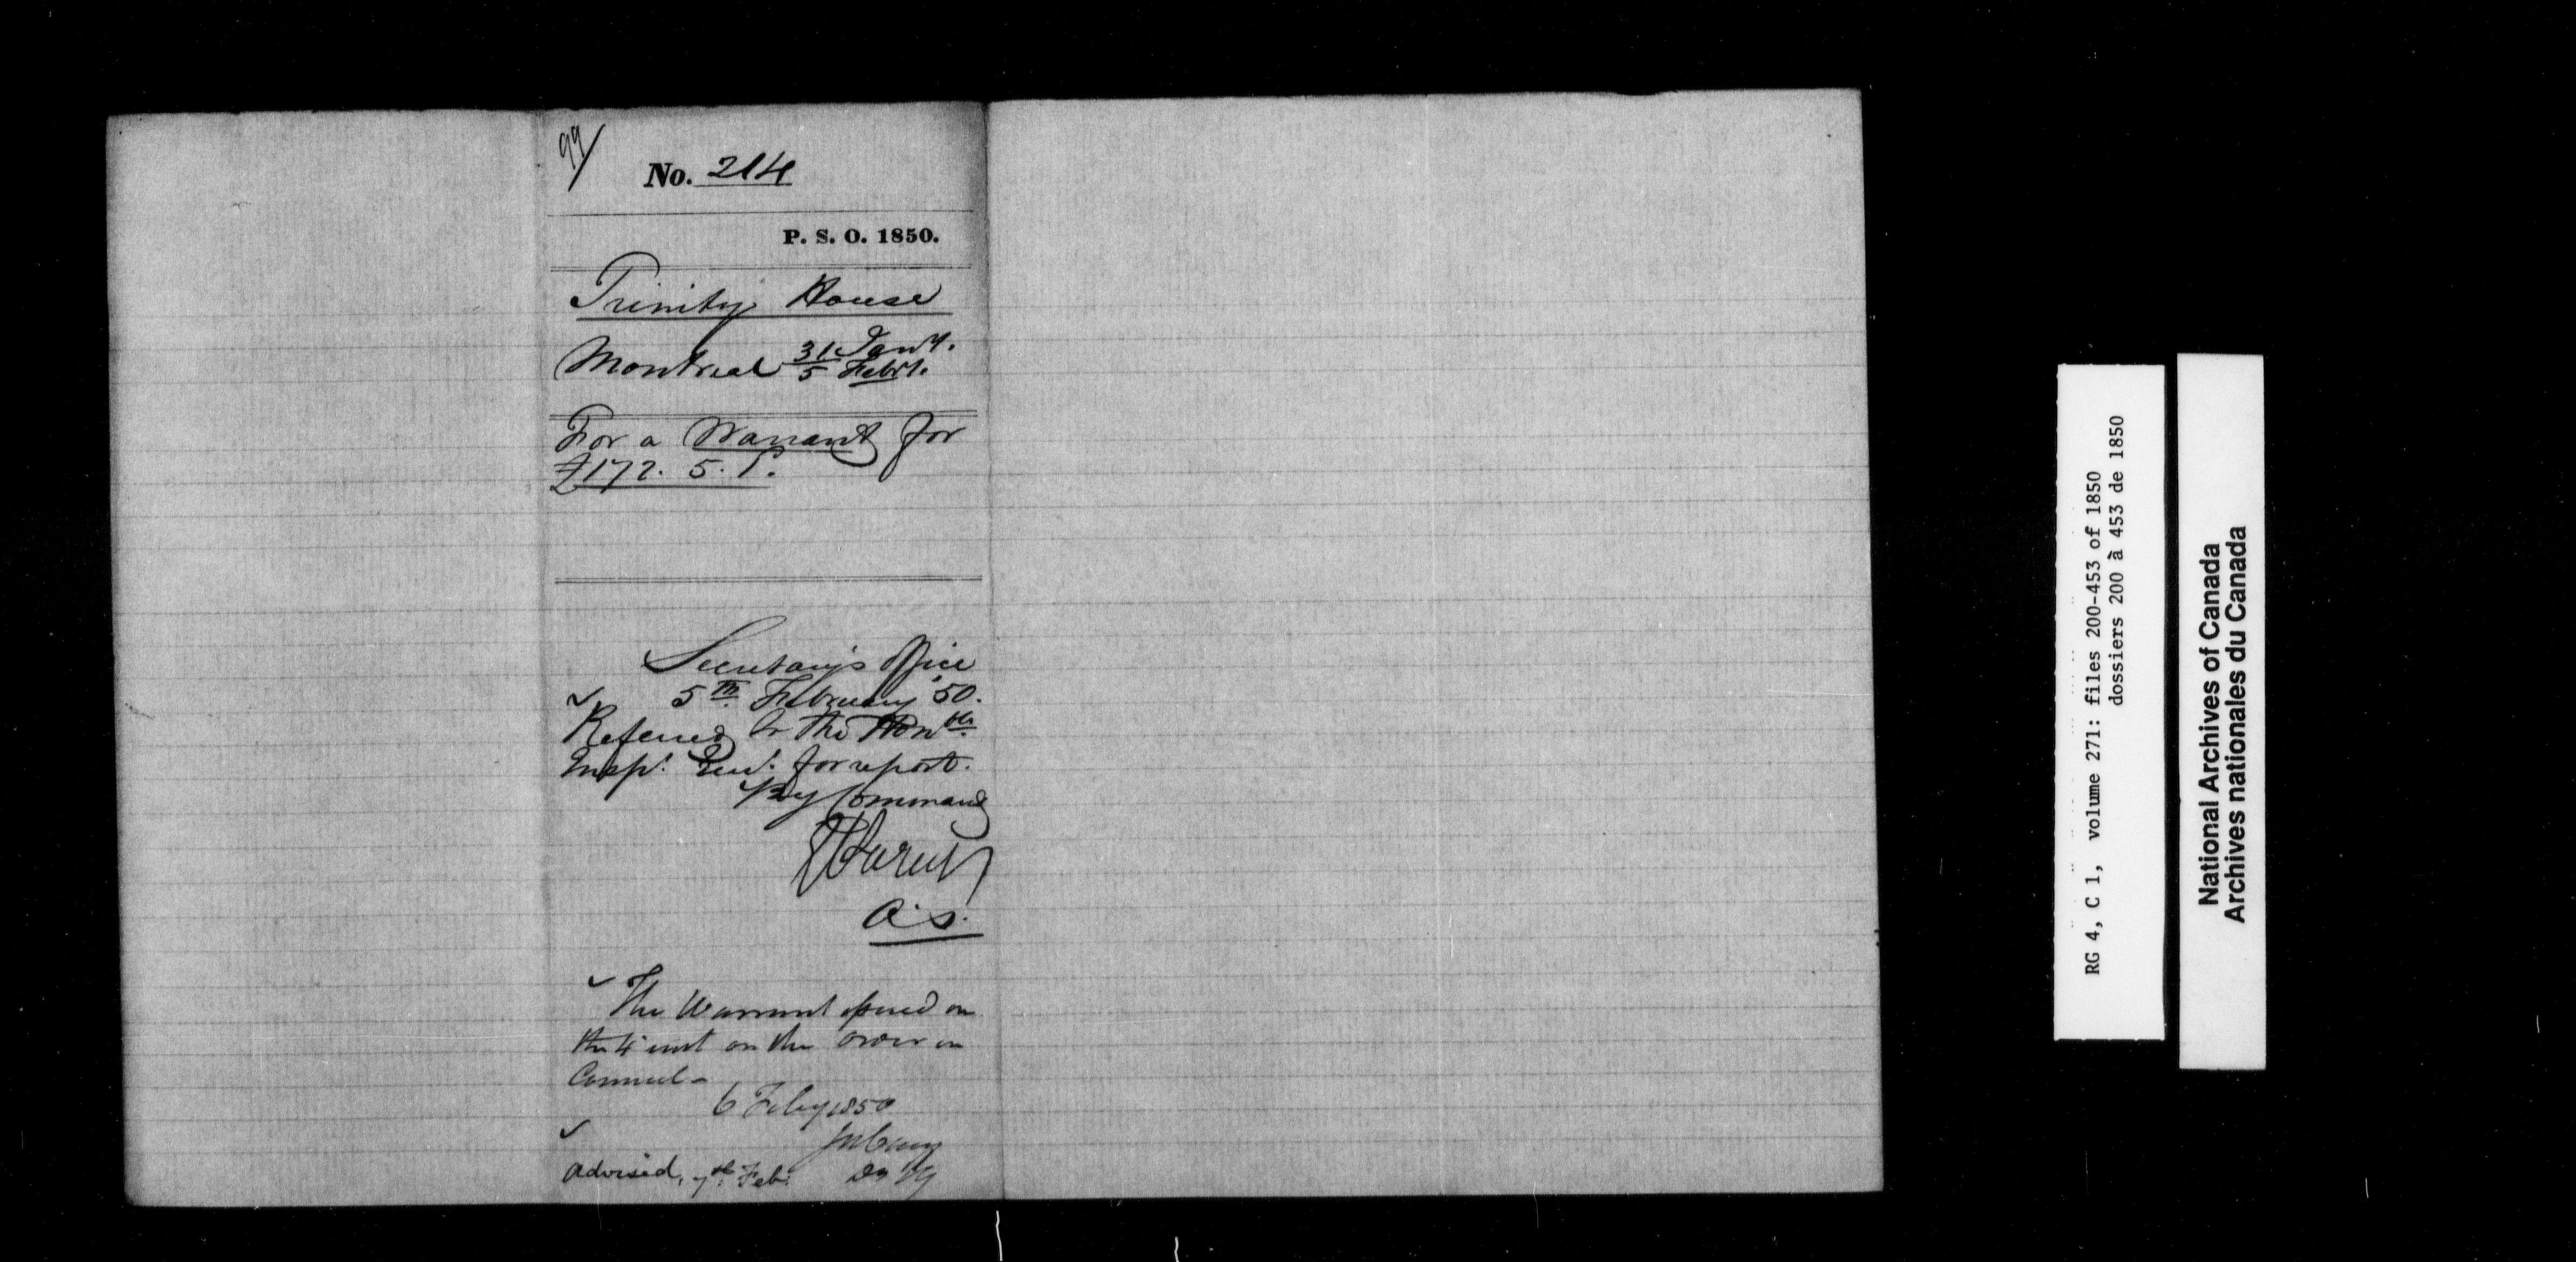 99/
No. 214
P. S. O. 1850.
Trinity House
Montreal 31 Jany.
5 Feby.
For a Warrant for
£172. 5. 1.
Secretary's Office
5th. February '50.
Referred to the Honble
Insp. Genl. for report.
By Command
E Parent
A. S.
The Warrant issued on
the 4 inst on the order in
Council -
6 Feby 1850
Jos Cary
D I G
Advised, 7th. Feb.
RG 4, C 1, volume 271: files 200-453 of 1850
dossiers 200 à 453 de 1850
National Archives of Canada
Archives nationales du Canada